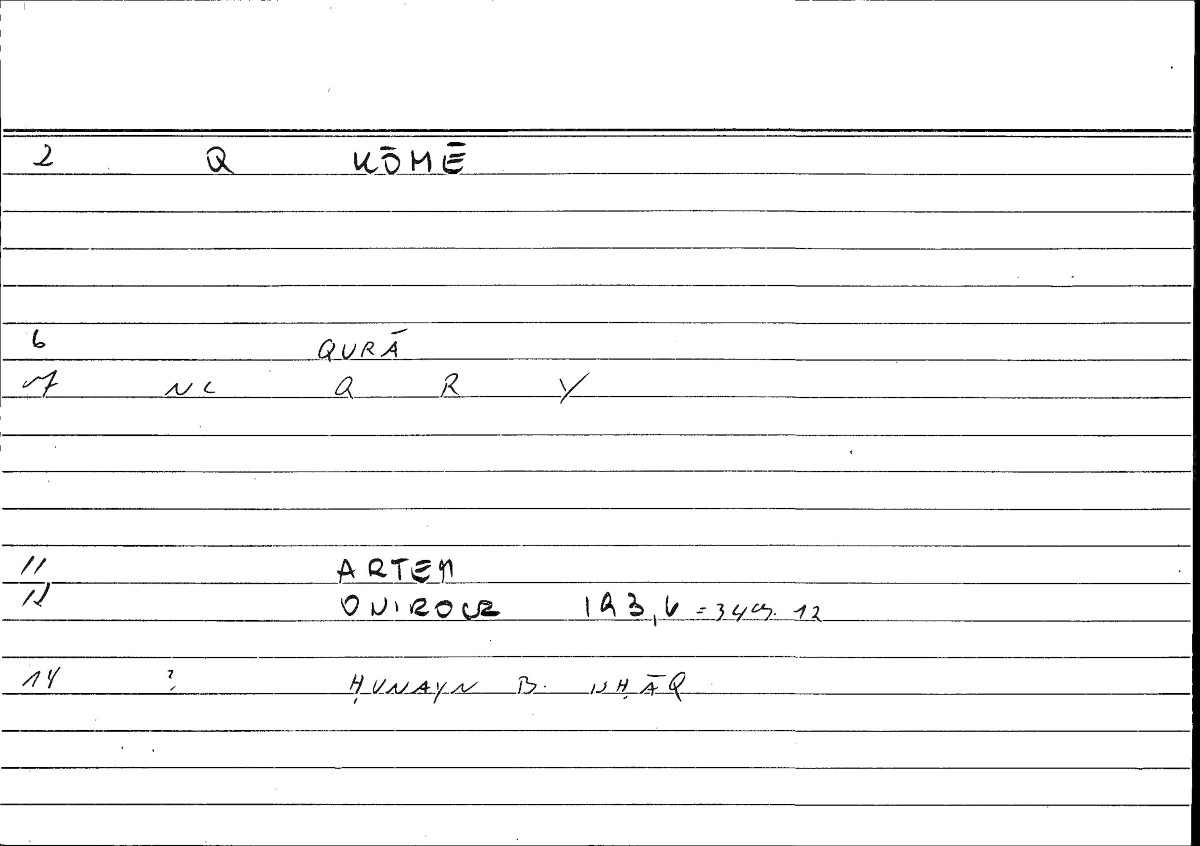 2 Q KŌMĒ
6 QURĀ
7 NC Q R Y
11 ARTEM
12 ONIROCR 193,6 =349. 12
14 ? ḤUNAYN B. ISḤĀQ